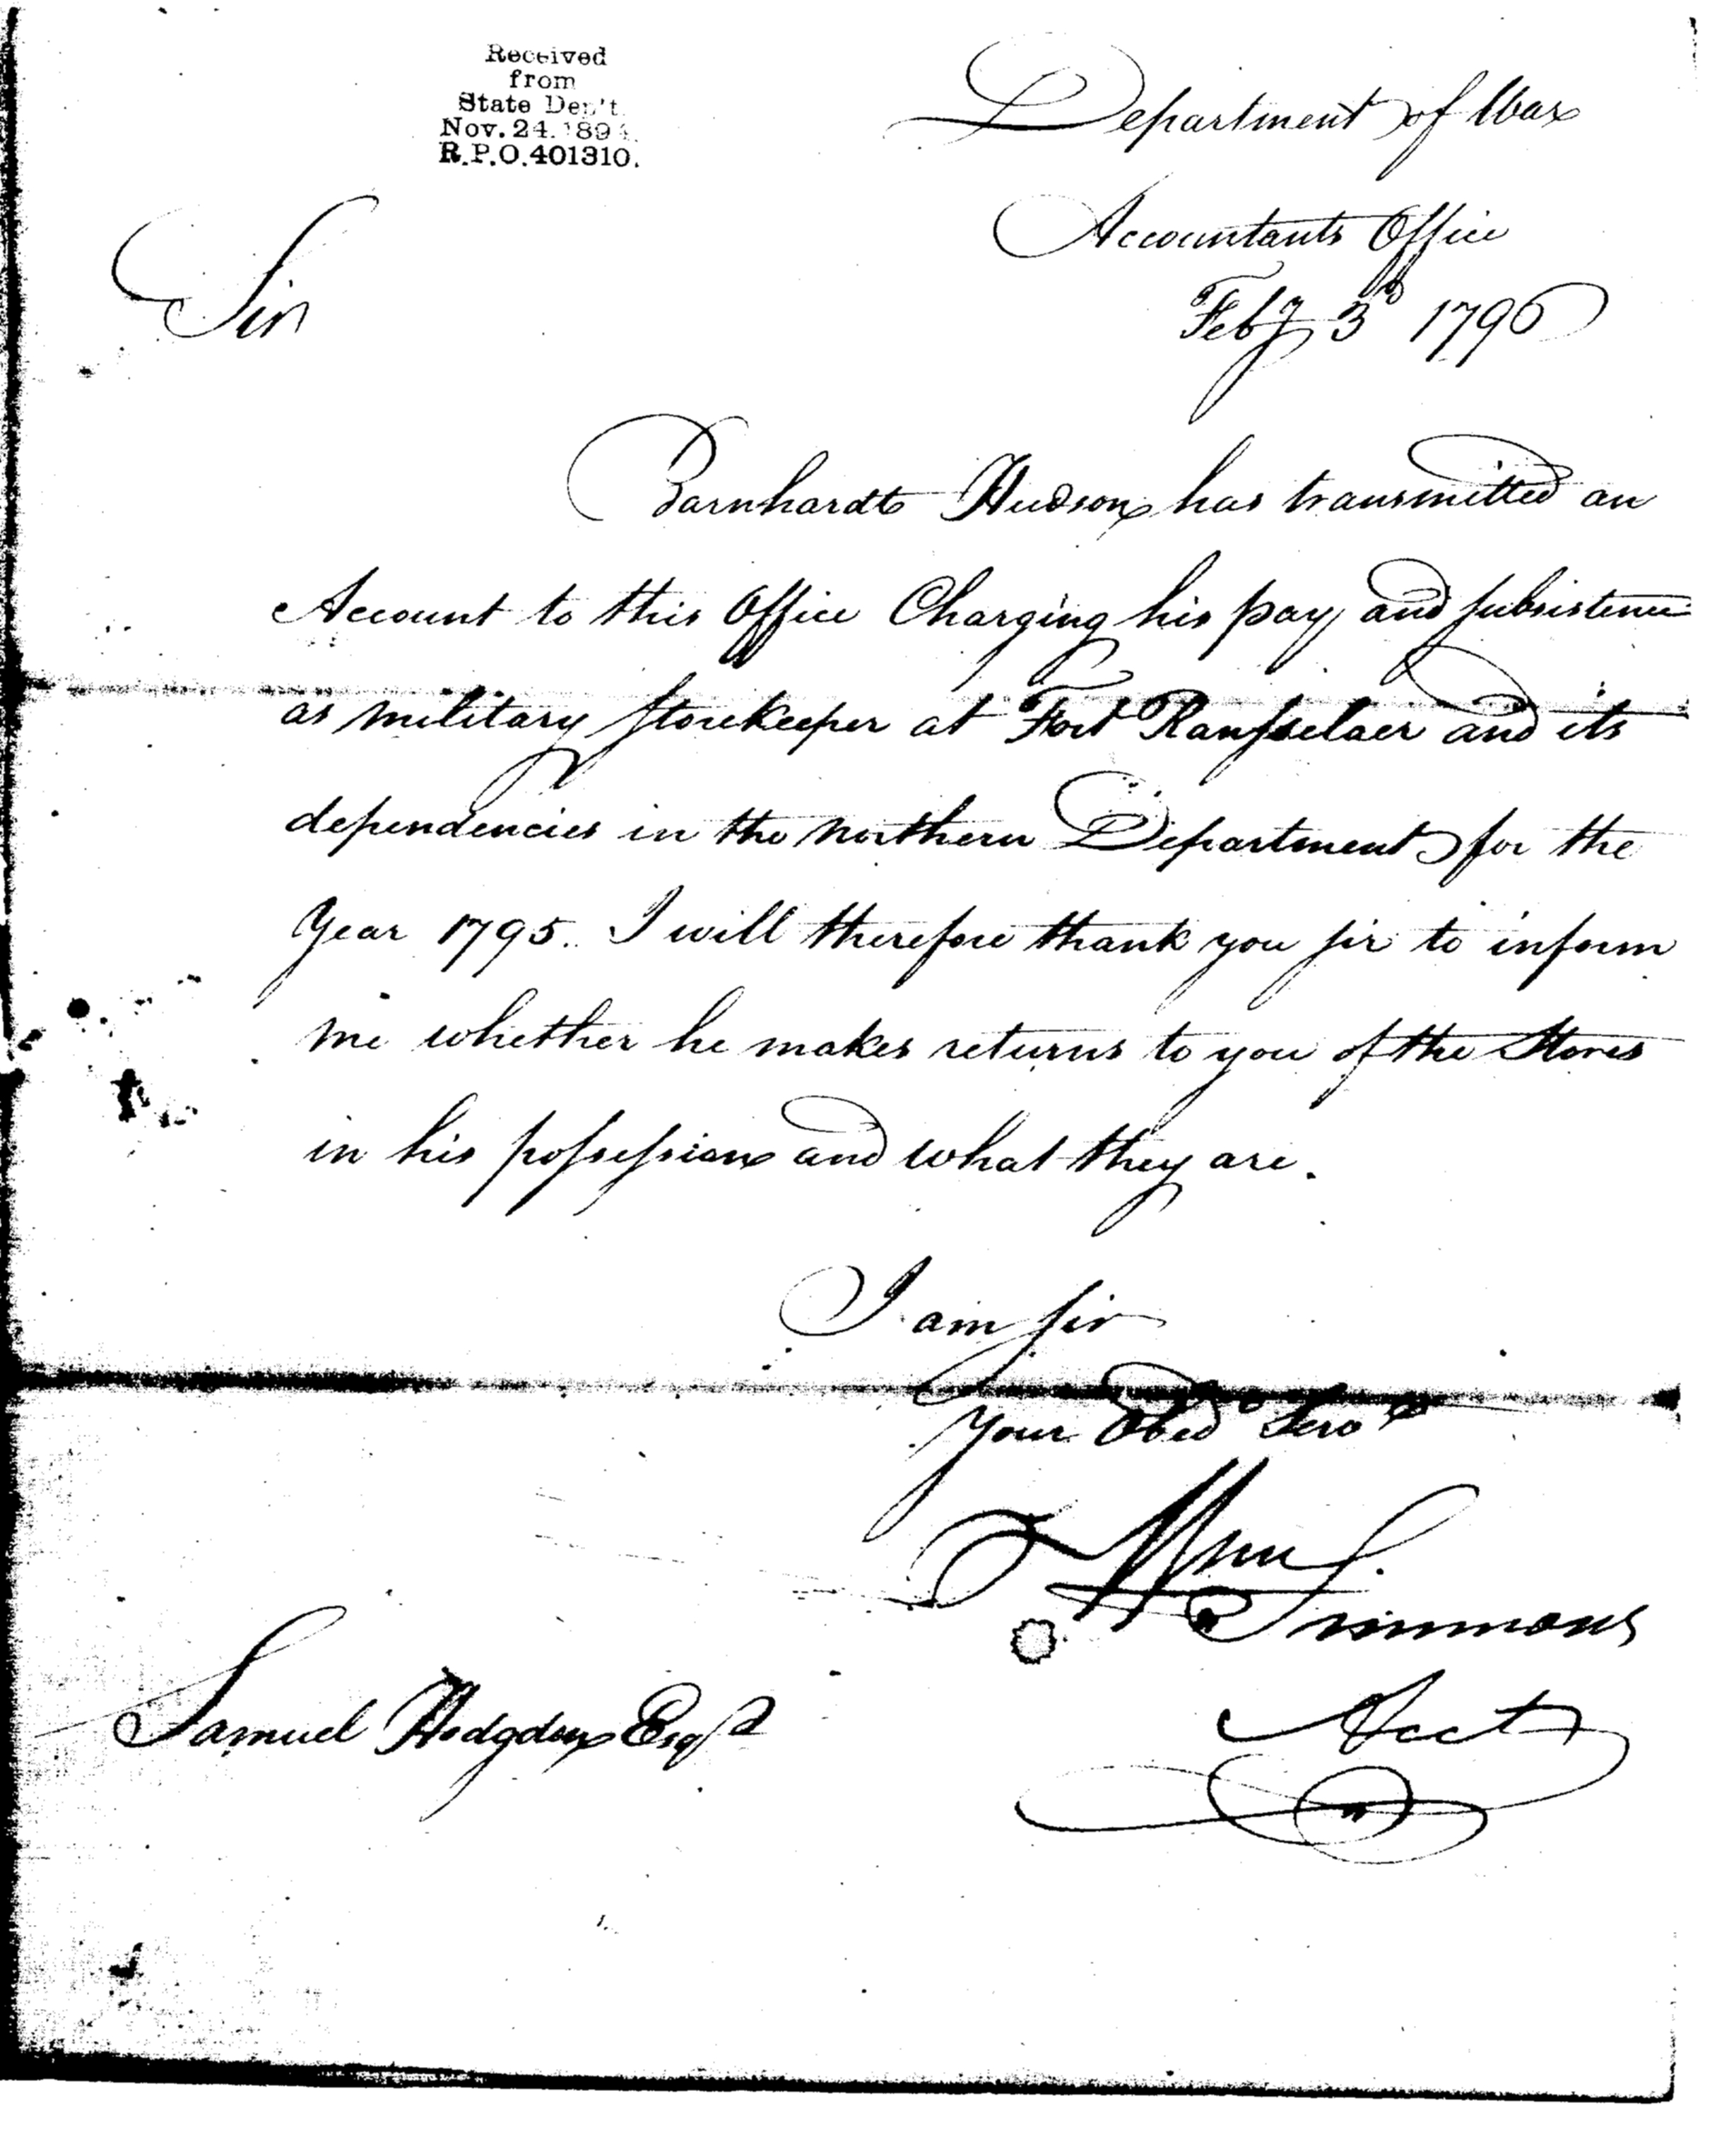 Received
from
State Dep't.
Nov. 24. 1894.
R.P.O. 401310.
Department of War
Accountants Office
Feby 3d 1796
Sir
Barnhardt Hudson has transmitted an
Account to this Office Charging his pay and subsistence
as military Storekeeper at Fort Ransselaer and its
dependencies in the northern Department for the
Year 1795. I will therefore thank you sir to inform
me whether he makes returns to you of the Stores
in his possession and what they are.
I am sir
Your Obed Servt
Wm Simmons
Acct
Samuel Hodgdon Esqr